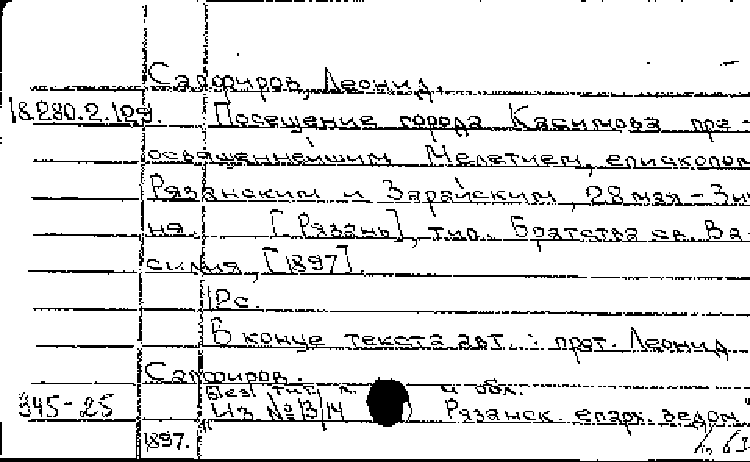 Сапфиров, Леонид.
18.280.2.129. Посещение города Касимова пре-
освященнейшим Мелетием, епископом
Рязанским и Зарайским, 28 мая - 3 ию
ня. [Рязань], тип. Братства св. Ва-
силия, [1897].
10 с.
В конце текста авт.: прот. Леонид
Сапфиров.
Без тит. л. и обл.
345-25 Из № 13/14 Рязанск. епарх. ведом."
1897.